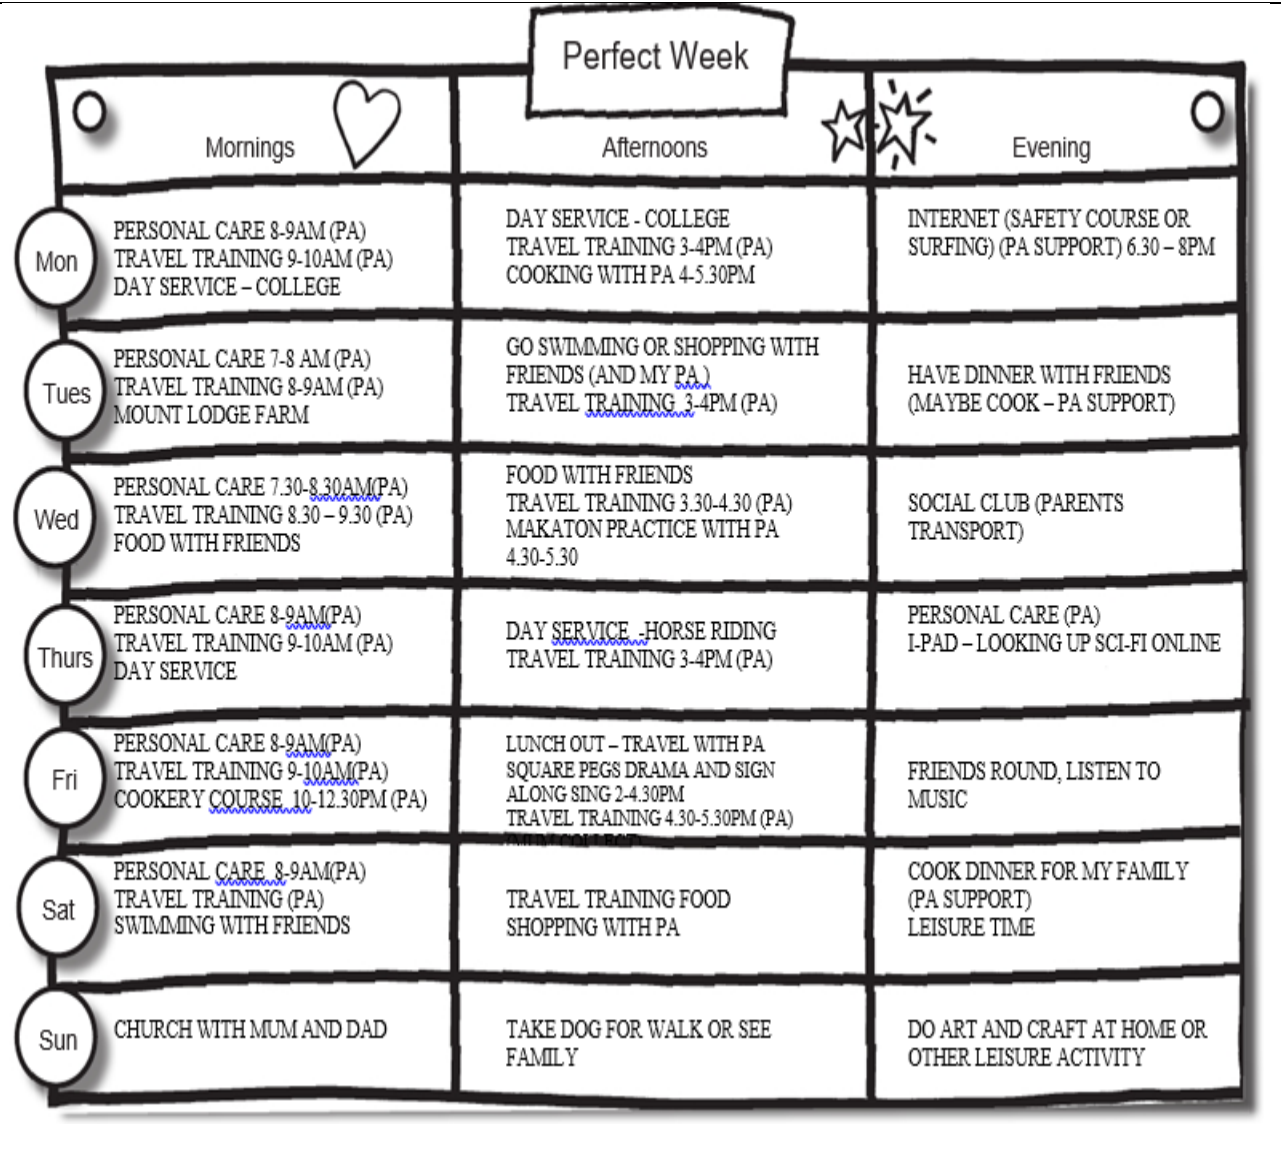 Perfect Week
Mornings
Afternoons
Evening
Mon
PERSONAL CARE 8-9AM (PA)
TRAVEL TRAINING 9-10AM (PA)
DAY SERVICE – COLLEGE
DAY SERVICE - COLLEGE
TRAVEL TRAINING 3-4PM (PA)
COOKING WITH PA 4-5.30PM
INTERNET (SAFETY COURSE OR
SURFING) (PA SUPPORT) 6.30 – 8PM
Tues
PERSONAL CARE 7-8 AM (PA)
TRAVEL TRAINING 8-9AM (PA)
MOUNT LODGE FARM
GO SWIMMING OR SHOPPING WITH
FRIENDS (AND MY PA )
TRAVEL TRAINING 3-4PM (PA)
HAVE DINNER WITH FRIENDS
(MAYBE COOK – PA SUPPORT)
Wed
PERSONAL CARE 7.30-8.30AM(PA)
TRAVEL TRAINING 8.30 – 9.30 (PA)
FOOD WITH FRIENDS
FOOD WITH FRIENDS
TRAVEL TRAINING 3.30-4.30 (PA)
MAKATON PRACTICE WITH PA
4.30-5.30
SOCIAL CLUB (PARENTS
TRANSPORT)
Thurs
PERSONAL CARE 8-9AM(PA)
TRAVEL TRAINING 9-10AM (PA)
DAY SERVICE
DAY SERVICE -HORSE RIDING
TRAVEL TRAINING 3-4PM (PA)
PERSONAL CARE (PA)
I-PAD – LOOKING UP SCI-FI ONLINE
Fri
PERSONAL CARE 8-9AM(PA)
TRAVEL TRAINING 9-10AM(PA)
COOKERY COURSE 10-12.30PM (PA)
LUNCH OUT – TRAVEL WITH PA
SQUARE PEGS DRAMA AND SIGN
ALONG SING 2-4.30PM
TRAVEL TRAINING 4.30-5.30PM (PA)
(MUM COLLECT)
FRIENDS ROUND, LISTEN TO
MUSIC
Sat
PERSONAL CARE 8-9AM(PA)
TRAVEL TRAINING (PA)
SWIMMING WITH FRIENDS
TRAVEL TRAINING FOOD
SHOPPING WITH PA
COOK DINNER FOR MY FAMILY
(PA SUPPORT)
LEISURE TIME
Sun
CHURCH WITH MUM AND DAD
TAKE DOG FOR WALK OR SEE
FAMILY
DO ART AND CRAFT AT HOME OR
OTHER LEISURE ACTIVITY